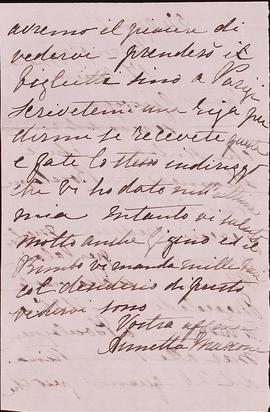 avremo il piacere di
vedervi - prenderò il
biglietto sino a Parigi
scrivetemi una riga per
dirmi se ricevete questa
e fate lo stesso indirizzo
che vi ho dato nell'ultima
mia Intanto vi saluto
molto anche Gigino ed il
Bimbo vi manda mille baci
col desiderio di presto
vedervi sono
Vostra affma
Annetta